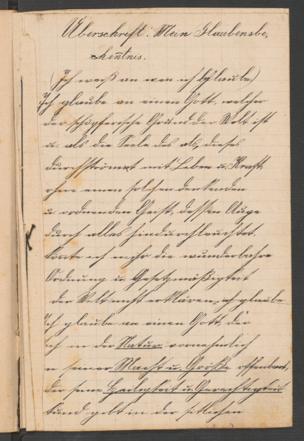 Überschrift: Mein Glaubensbe-
kenntnis.
(Ich weiß an wen ich glaube)
Ich glaube an einen Gott, welcher
der schöpferische Grund der Welt ist
u. als die Seele des als, dieses
durchströmt mit Leben u. Kraft
ohne einen solchen denkenden
u. ordnenden Geist, dessen Auge
durch alles hindurchleuchtet,
könnte ich mir die wunderbare
Ordnung u. Gesetzmäßigkeit
der Welt nicht erklären, ich glaube
Ich glaube an einen Gott, der
sich in der Natur vornehmlich
in seiner Macht u. Größe offenbart,
der seine Heiligkeit u. Gerechtigkeit
kund gibt in der sittlichen